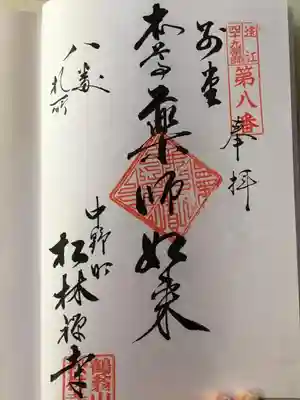 遠江
四十九薬師
第八番
奉拝
別堂
本尊薬師如来
中野町
松林禅寺
鶴翁山
札所